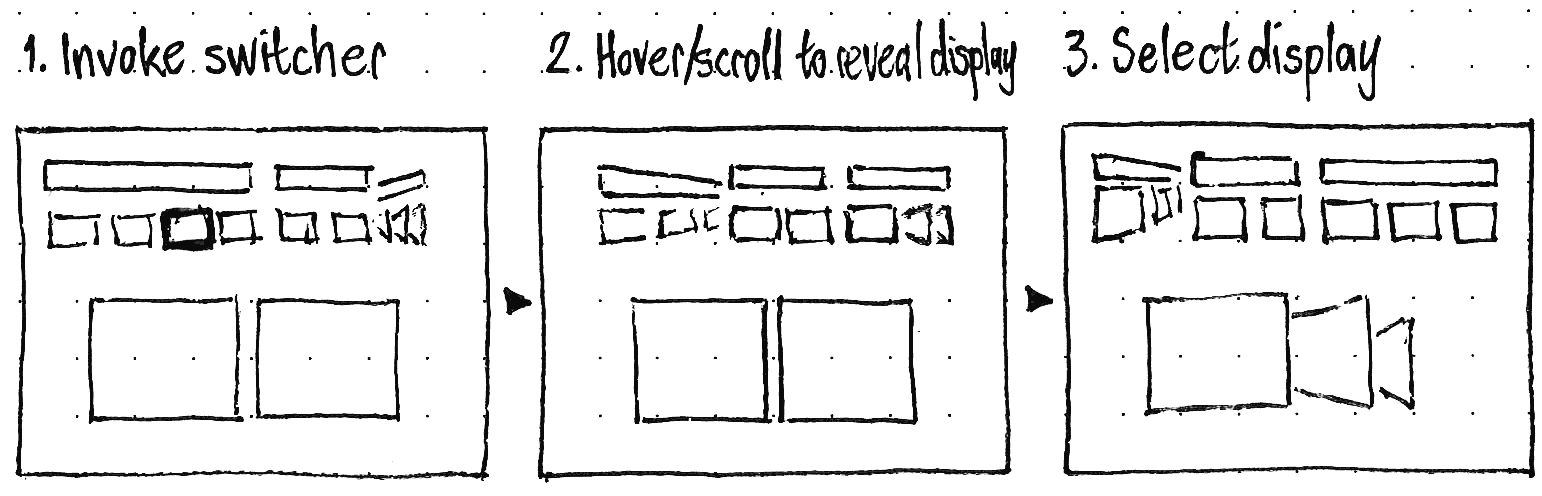 1. Invoke switcher
2. Hover/scroll to reveal display
3. Select display